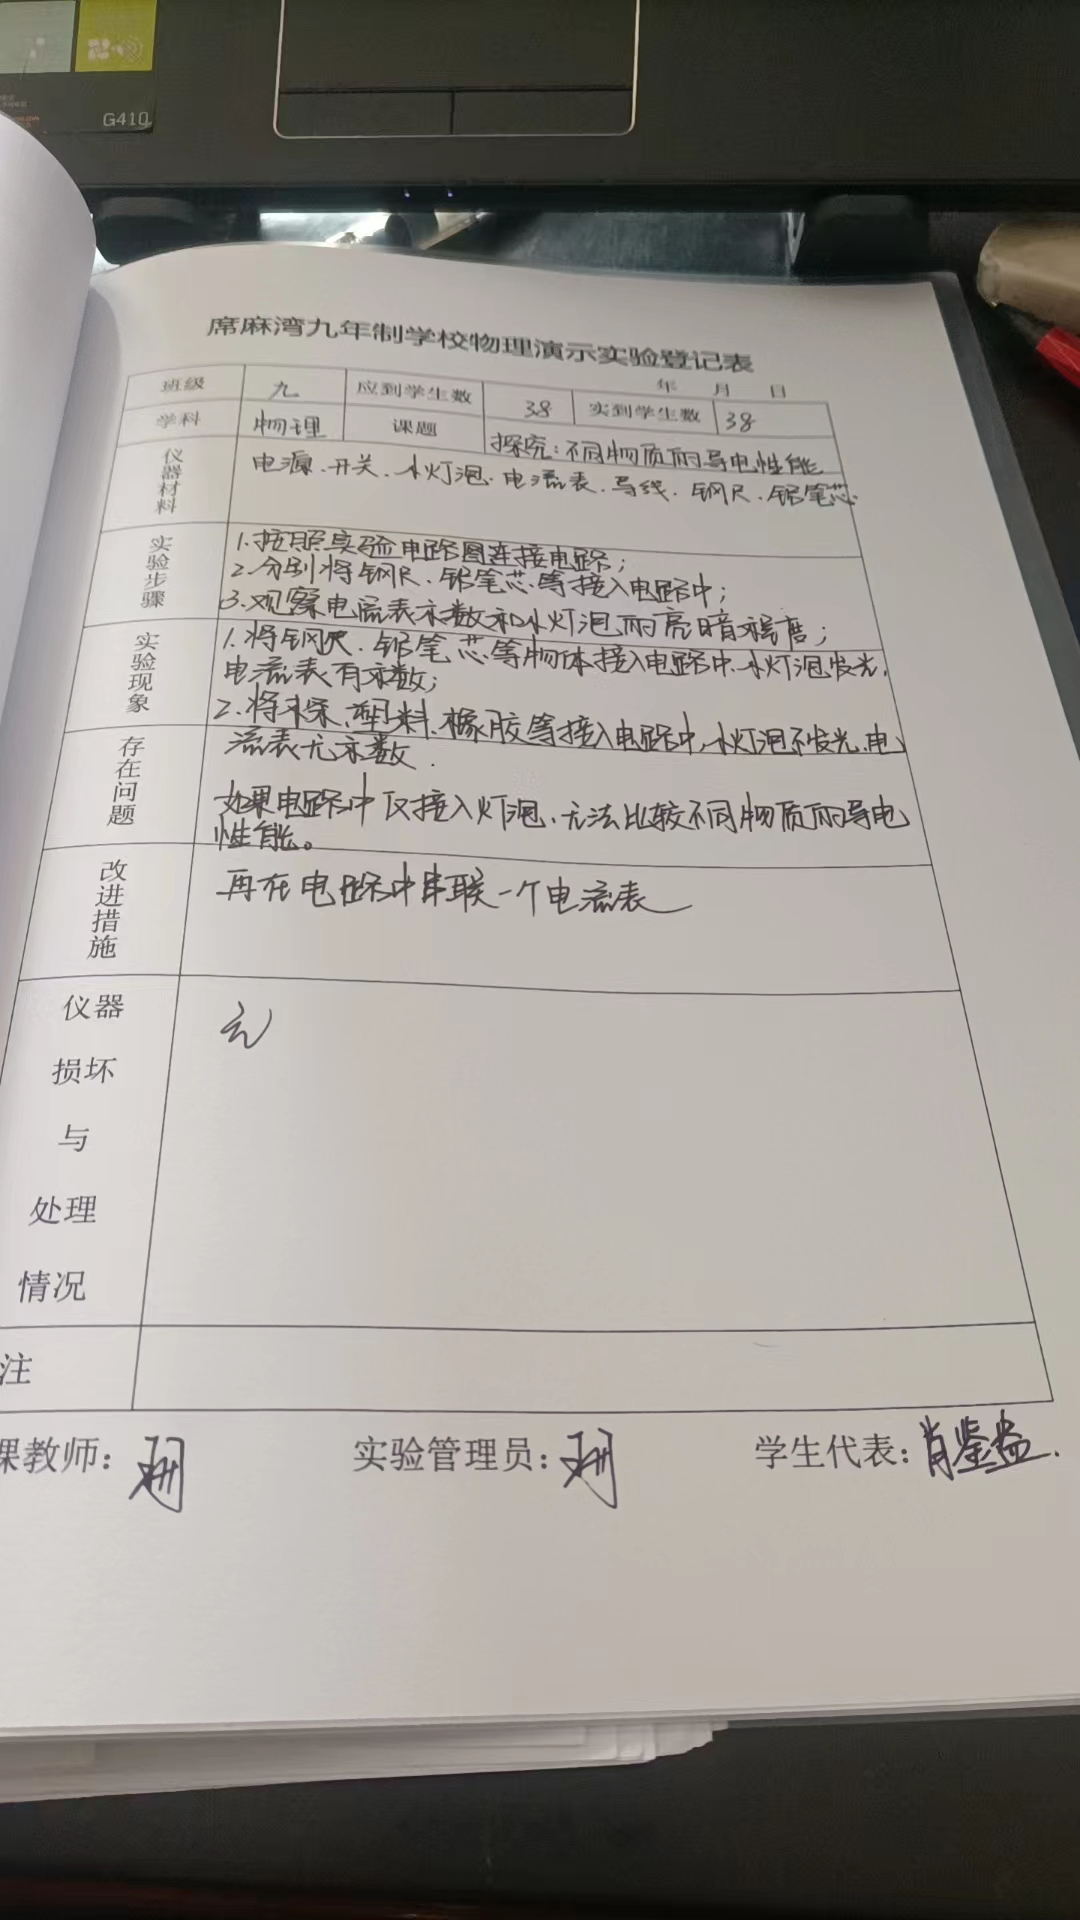 G410
席麻湾九年制学校物理演示实验登记表
年 月 日
班级 九 应到学生数 38 实到学生数 38
学科 物理 课题 探究:不同物质的导电性能
仪器材料 电源、开关、小灯泡、电流表、导线、钢尺、铅笔芯
实验步骤 1.按照实验电路图连接电路;
2.分别将钢尺、铅笔芯等接入电路中;
3.观察电流表示数和小灯泡的亮暗程度;
实验现象 1.将钢尺、铅笔芯等物体接入电路中,小灯泡发光,
电流表有示数;
2.将木条、塑料、橡胶等接入电路中,小灯泡不发光,电
流表无示数.
存在问题 如果电路中仅接入灯泡、无法比较不同物质的导电
性能。
改进措施 再在电路中串联一个电流表
仪器 无
损坏
与
处理
情况
注
课教师: 实验管理员: 学生代表:肖鉴益.